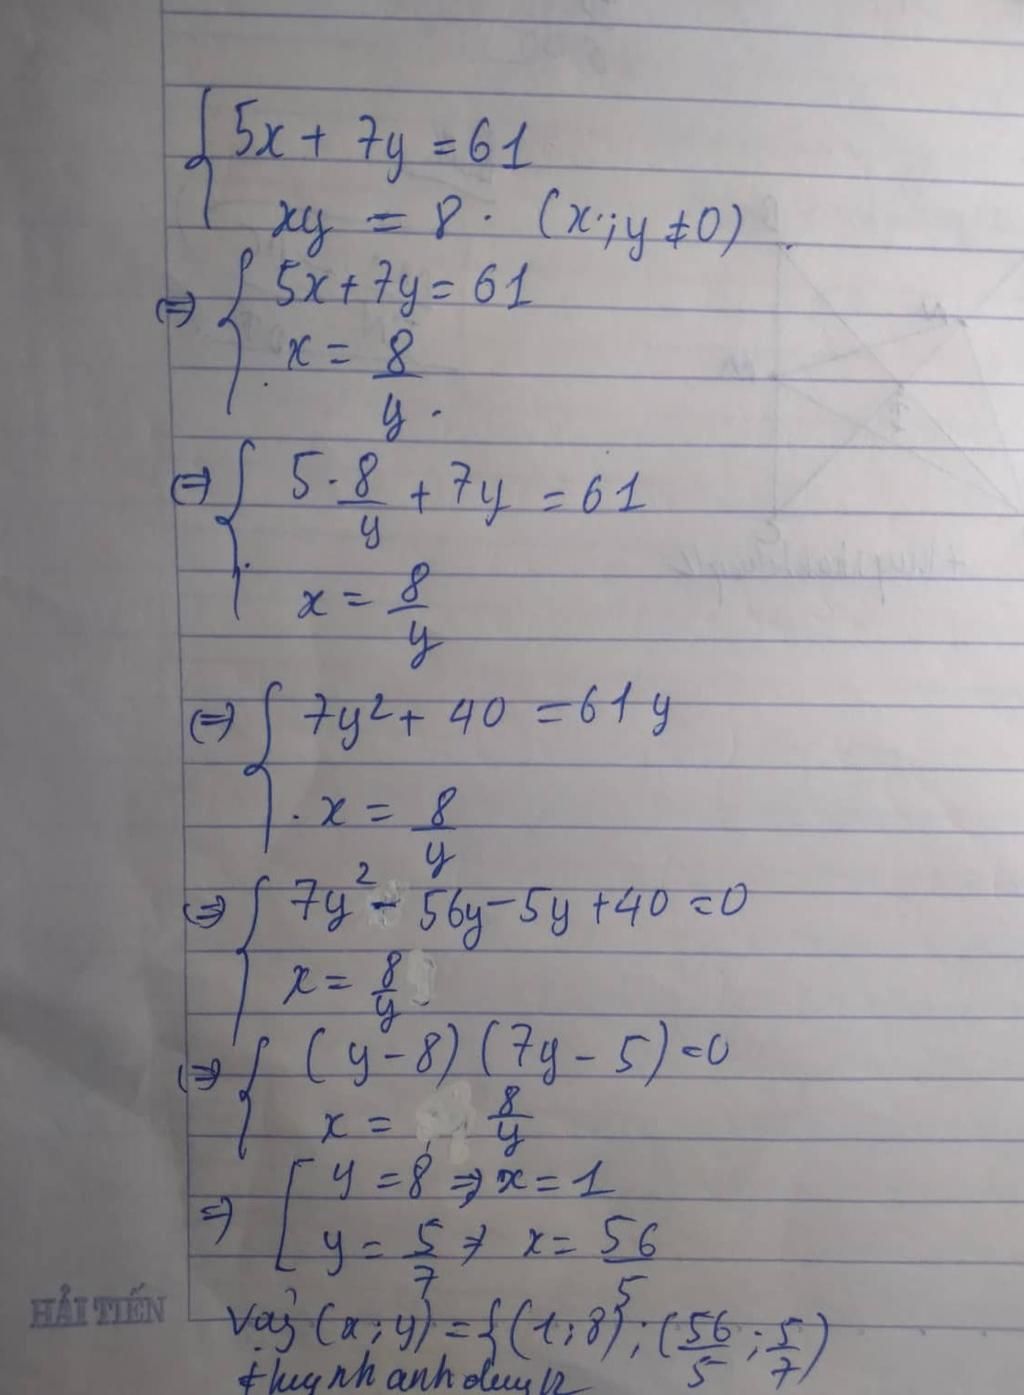 5x + 7y = 61
xy = 8 . (x ; y ≠ 0)
(=) 5x + 7y = 61
x = 8/y .
(=) 5 . 8/y + 7y = 61
x = 8/y
(=) 7y² + 40 = 61y
. x = 8/y
(=) 7y² - 56y - 5y + 40 = 0
x = 8/y
(=) (y - 8) (7y - 5) = 0
x = 8/y
=) y = 8 => x = 1
y = 5/7 => x = 56/5
HẢI TIẾN
Vậy (x ; y) = {(1 ; 8) ; (56/5 ; 5/7)